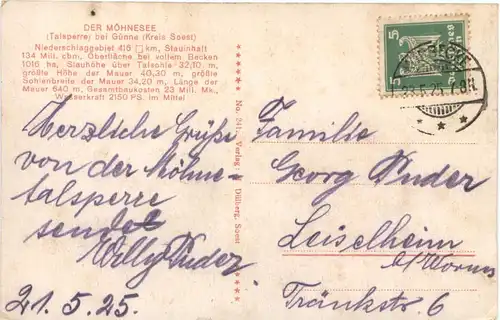 DER MÖHNESEE
(Talsperre) bei Günne (Kreis Soest)
Niederschlaggebiet 416 □ km, Stauinhalt
134 Mill. cbm, Oberfläche bei vollem Becken
1016 ha, Stauhöhe über Talsohle 32,10 m,
größte Höhe der Mauer 40,30 m, größte
Sohlenbreite der Mauer 34,20 m, Länge der
Mauer 640 m, Gesamtbaukosten 23 Mill. Mk.,
Wasserkraft 2150 PS. im Mittel
Herzliche Grüße
von der Möhne-
talsperre
sendet
Willy Puder.
21.5.25.
Verlag Dülberg, Soest
5
Familie
Georg Puder
Leiselheim
b/Worms
Tränkstr. 6